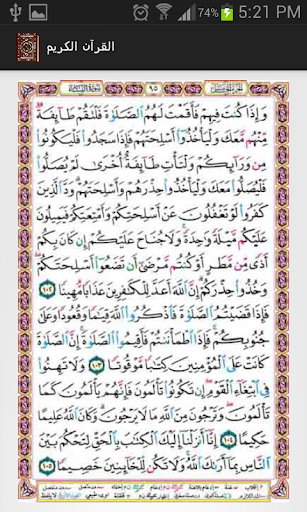 74% 5:21 PM
القرآن الكريم
٩٥
وَإِذَا كُنتَ فِيهِمْ فَأَقَمْتَ لَهُمُ الصَّلَاةَ فَلْتَقُمْ طَآئِفَةٌ
مِّنْهُم مَّعَكَ وَلْيَأْخُذُوا أَسْلِحَتَهُمْ فَإِذَا سَجَدُوا فَلْيَكُونُوا
مِن وَرَآئِكُمْ وَلْتَأْتِ طَآئِفَةٌ أُخْرَى لَمْ يُصَلُّوا
فَلْيُصَلُّوا مَعَكَ وَلْيَأْخُذُوا حِذْرَهُمْ وَأَسْلِحَتَهُمْ وَدَّ الَّذِينَ
كَفَرُوا لَوْ تَغْفُلُونَ عَنْ أَسْلِحَتِكُمْ وَأَمْتِعَتِكُمْ فَيَمِيلُونَ
عَلَيْكُم مَّيْلَةً وَاحِدَةً وَلَا جُنَاحَ عَلَيْكُمْ إِن كَانَ بِكُمْ
أَذًى مِّن مَّطَرٍ أَوْ كُنتُم مَّرْضَى أَن تَضَعُوا أَسْلِحَتَكُمْ
وَخُذُوا حِذْرَكُمْ إِنَّ اللَّهَ أَعَدَّ لِلْكَافِرِينَ عَذَابًا مُّهِينًا ١٠٢
فَإِذَا قَضَيْتُمُ الصَّلَاةَ فَاذْكُرُوا اللَّهَ قِيَامًا وَقُعُودًا وَعَلَى
جُنُوبِكُمْ فَإِذَا اطْمَأْنَنتُمْ فَأَقِيمُوا الصَّلَاةَ إِنَّ الصَّلَاةَ
كَانَتْ عَلَى الْمُؤْمِنِينَ كِتَابًا مَّوْقُوتًا ١٠٣ وَلَا تَهِنُوا
فِي ابْتِغَآءِ الْقَوْمِ إِن تَكُونُوا تَأْلَمُونَ فَإِنَّهُمْ يَأْلَمُونَ كَمَا
تَأْلَمُونَ وَتَرْجُونَ مِنَ اللَّهِ مَا لَا يَرْجُونَ وَكَانَ اللَّهُ عَلِيمًا
حَكِيمًا ١٠٤ إِنَّآ أَنزَلْنَآ إِلَيْكَ الْكِتَابَ بِالْحَقِّ لِتَحْكُمَ بَيْنَ
النَّاسِ بِمَآ أَرَاكَ اللَّهُ وَلَا تَكُن لِّلْخَآئِنِينَ خَصِيمًا ١٠٥